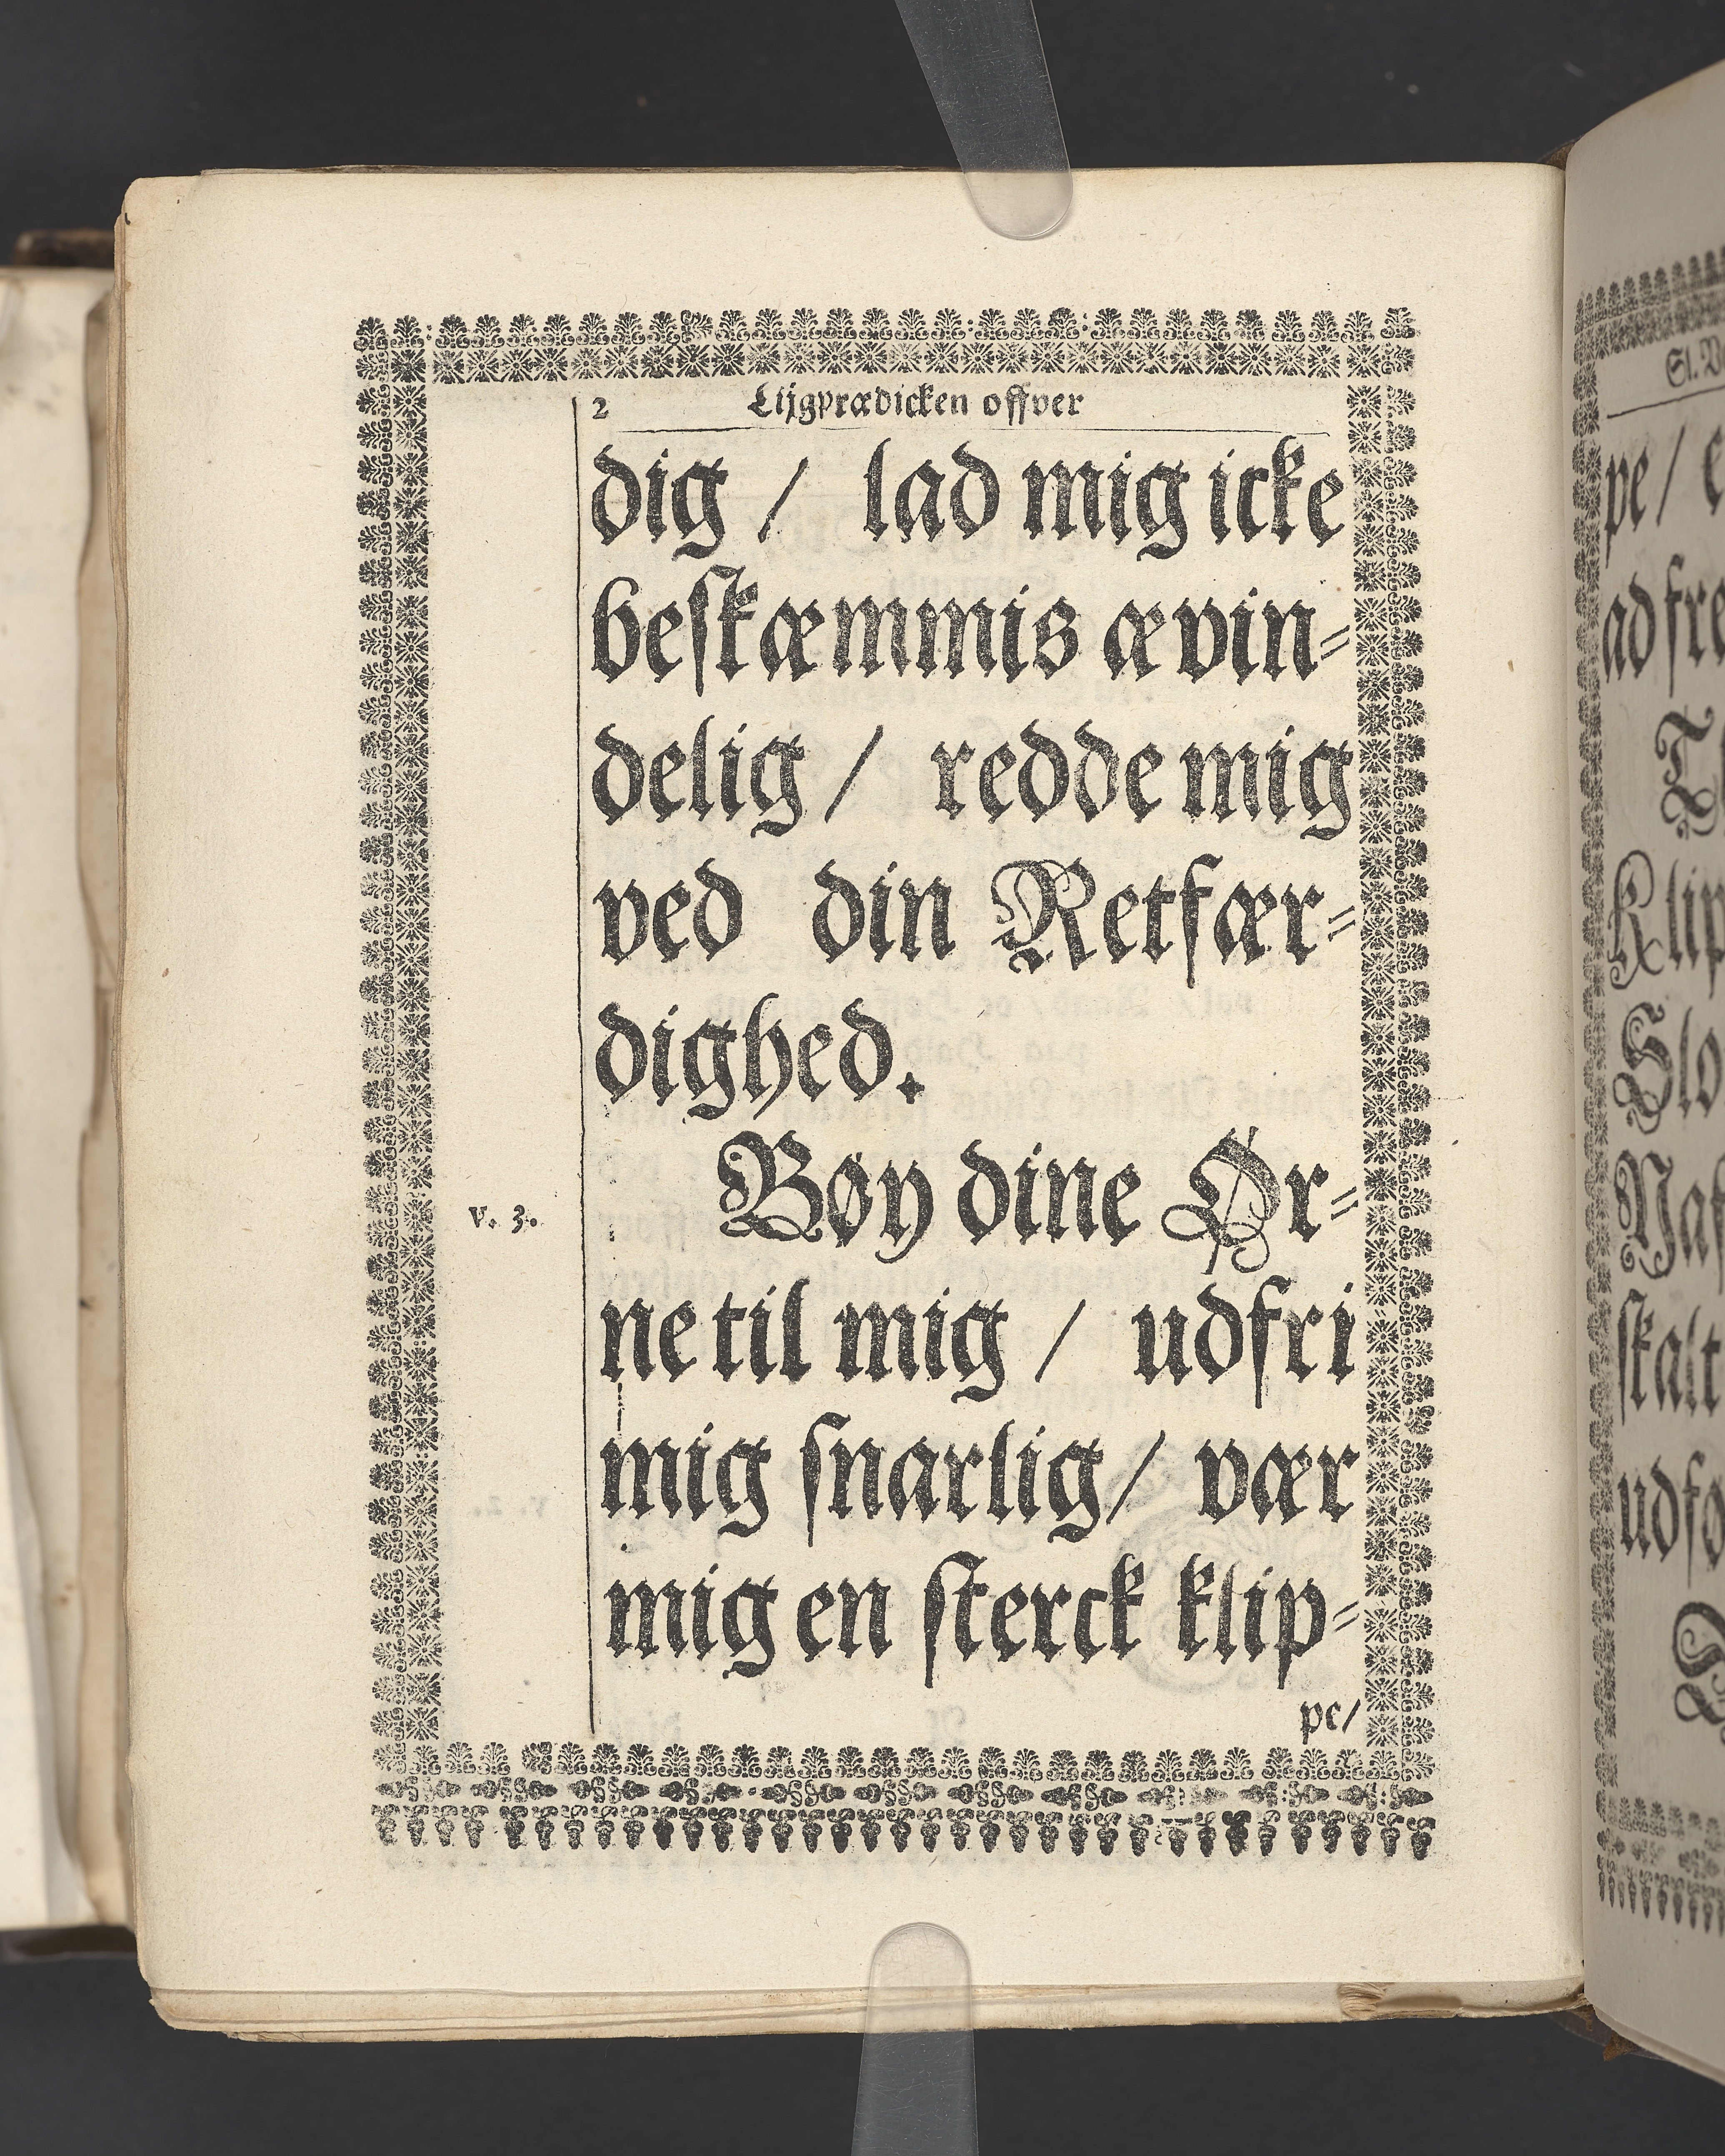 2 Lijgprædicken offver
dig / lad mig icke
beskæmmis ævin-
delig / redde mig
ved din Retfær-
dighed.
v. 3. Bøy dine Ør-
ne til mig / udfri
mig snarlig / vær
mig en sterck klip-
pe /
pe /
ad fre
Klip
Slo
skalt